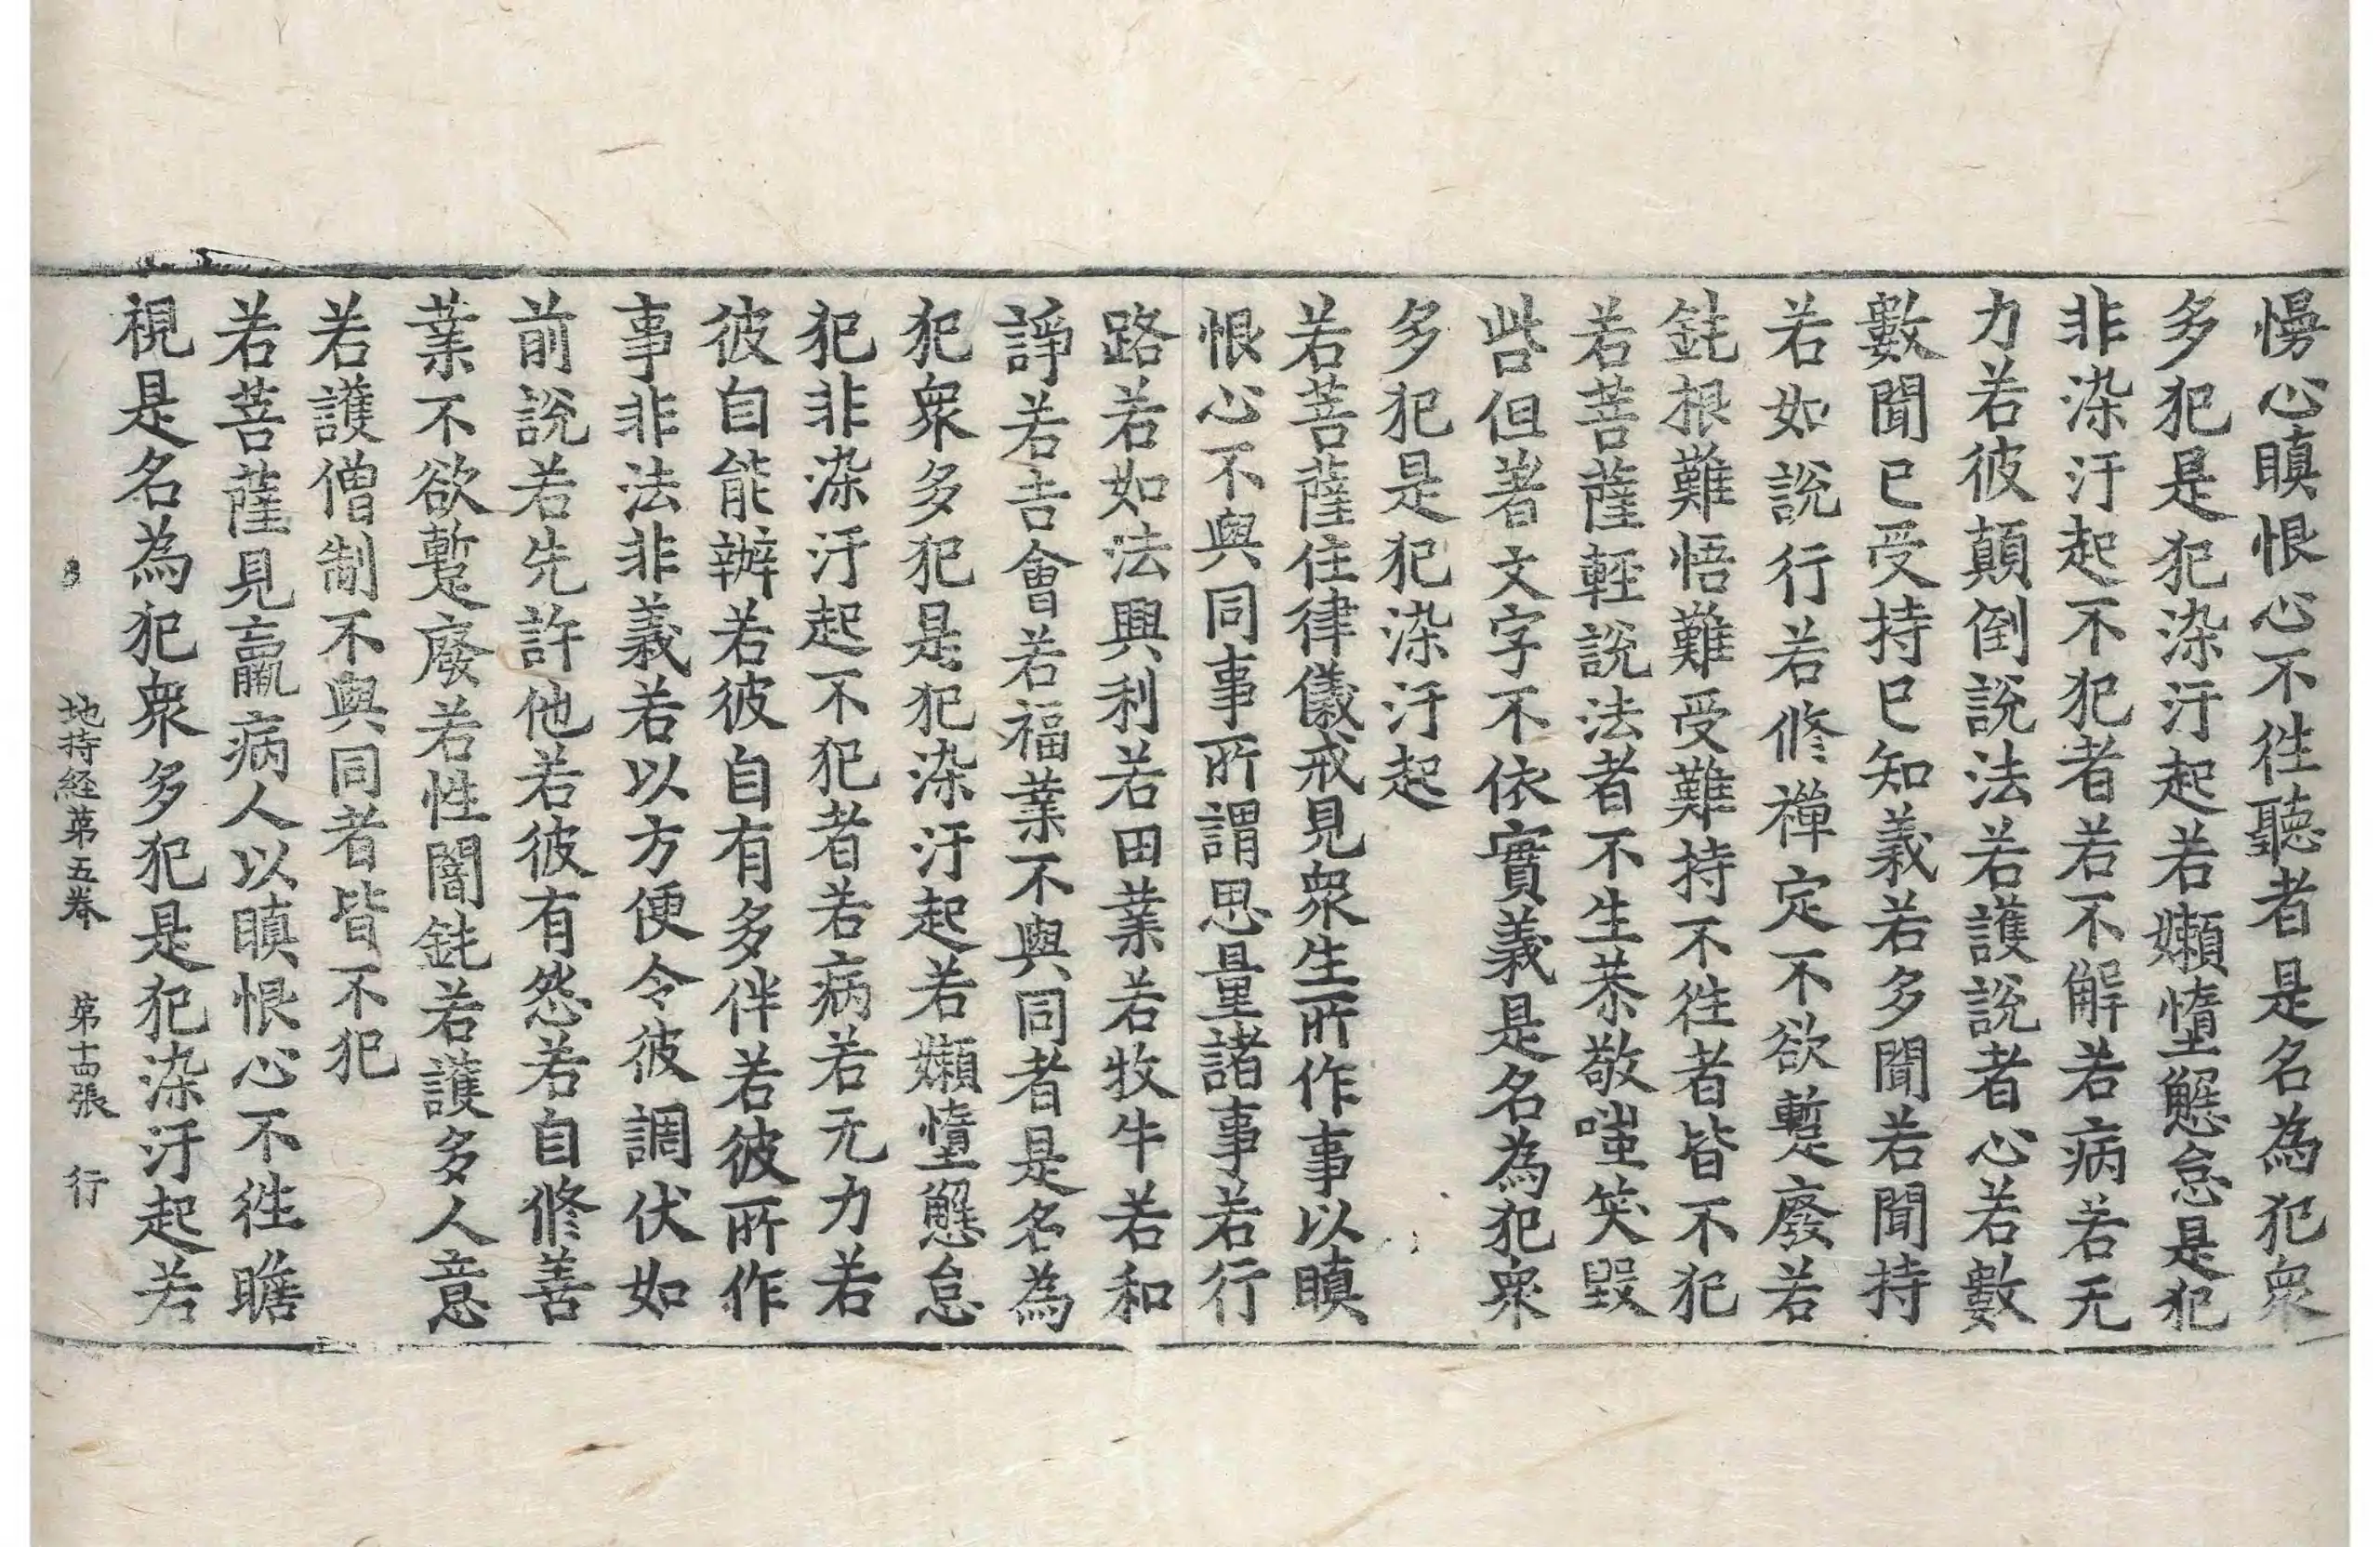 慢心瞋恨心不徃聽者是名為犯衆
多犯是犯染汙起若嬾墮懈怠是犯
非染汙起不犯者若不解若病若无
力若彼顛倒說法若護說者心若數
數聞已受持已知義若多聞若聞持
若如說行若修禪定不欲蹔廢若
鈍根難悟難受難持不徃者皆不犯
若菩薩輕說法者不生恭敬嗤笑毀
呰但著文字不依實義是名為犯衆
多犯是犯染汙起
若菩薩住律儀戒見衆生所作事以瞋
恨心不與同事所謂思量諸事若行
路若如法興利若田業若牧牛若和
諍若吉會若福業不與同者是名為
犯衆多犯是犯染汙起若嬾墮懈怠
犯非染汙起不犯者若病若无力若
彼自能辦若彼自有多伴若彼所作
事非法非義若以方便令彼調伏如
前說若先許他若彼有怨若自修善
業不欲蹔廢若性闇鈍若護多人意
若護僧制不與同者皆不犯
若菩薩見羸病人以瞋恨心不徃瞻
視是名為犯衆多犯是犯染汙起若
地持経苐五巻 苐十四張 行